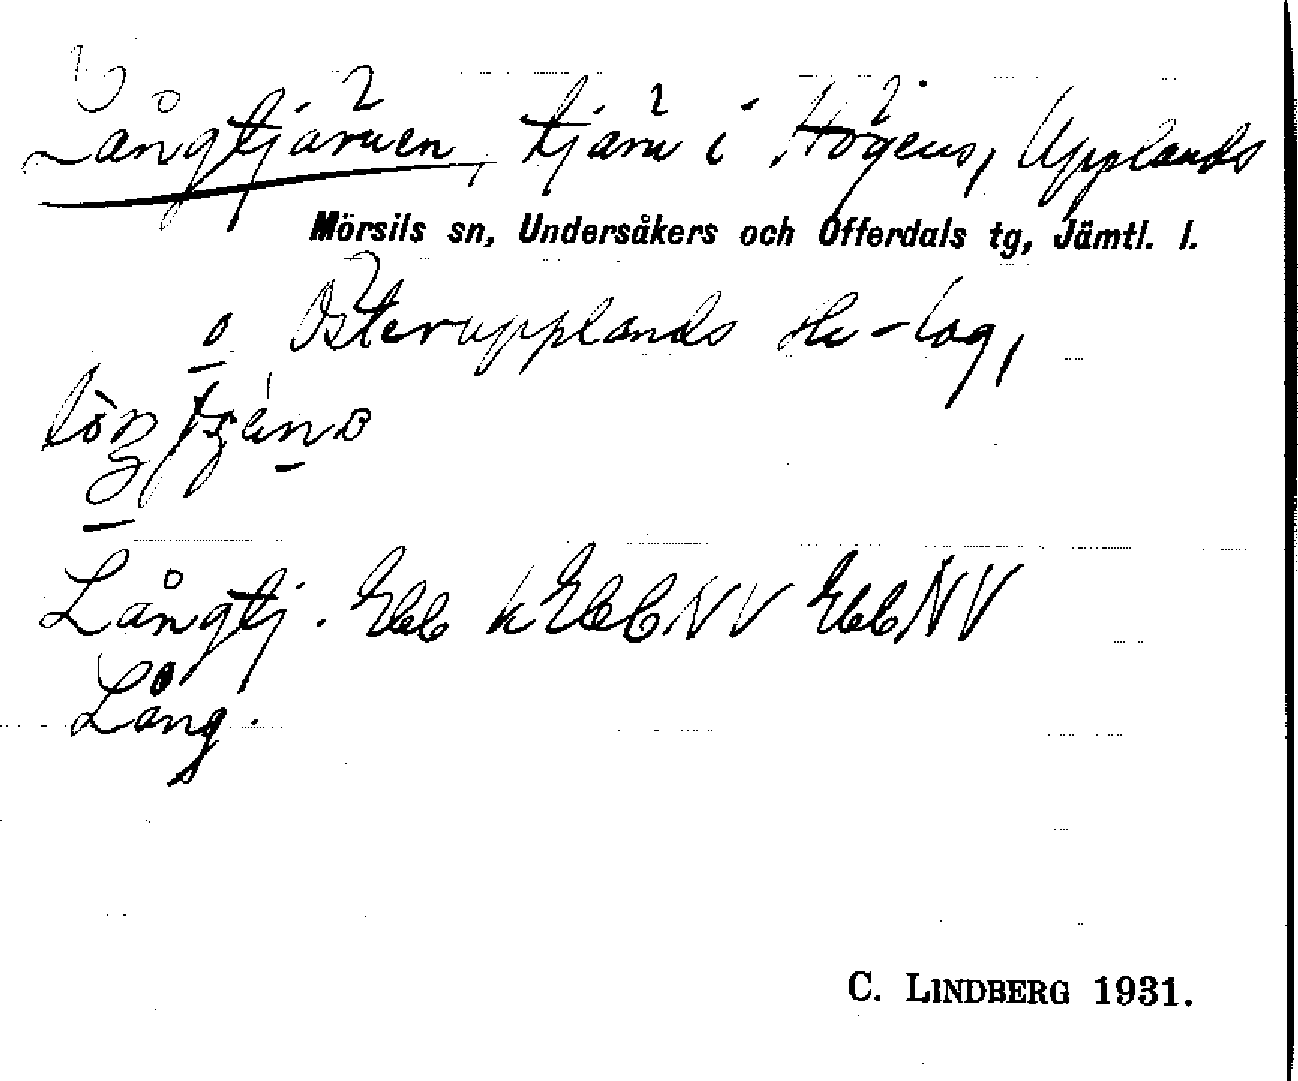 Långtjärnen, tjärn i Högens, Upplands
Mörsils sn, Undersåkers och Offerdals tg, Jämtl. l.
o Österupplands sk-lag,
Långtj. Ebb k EbbNV EbbNV
Lång.
C. LINDBERG 1931.